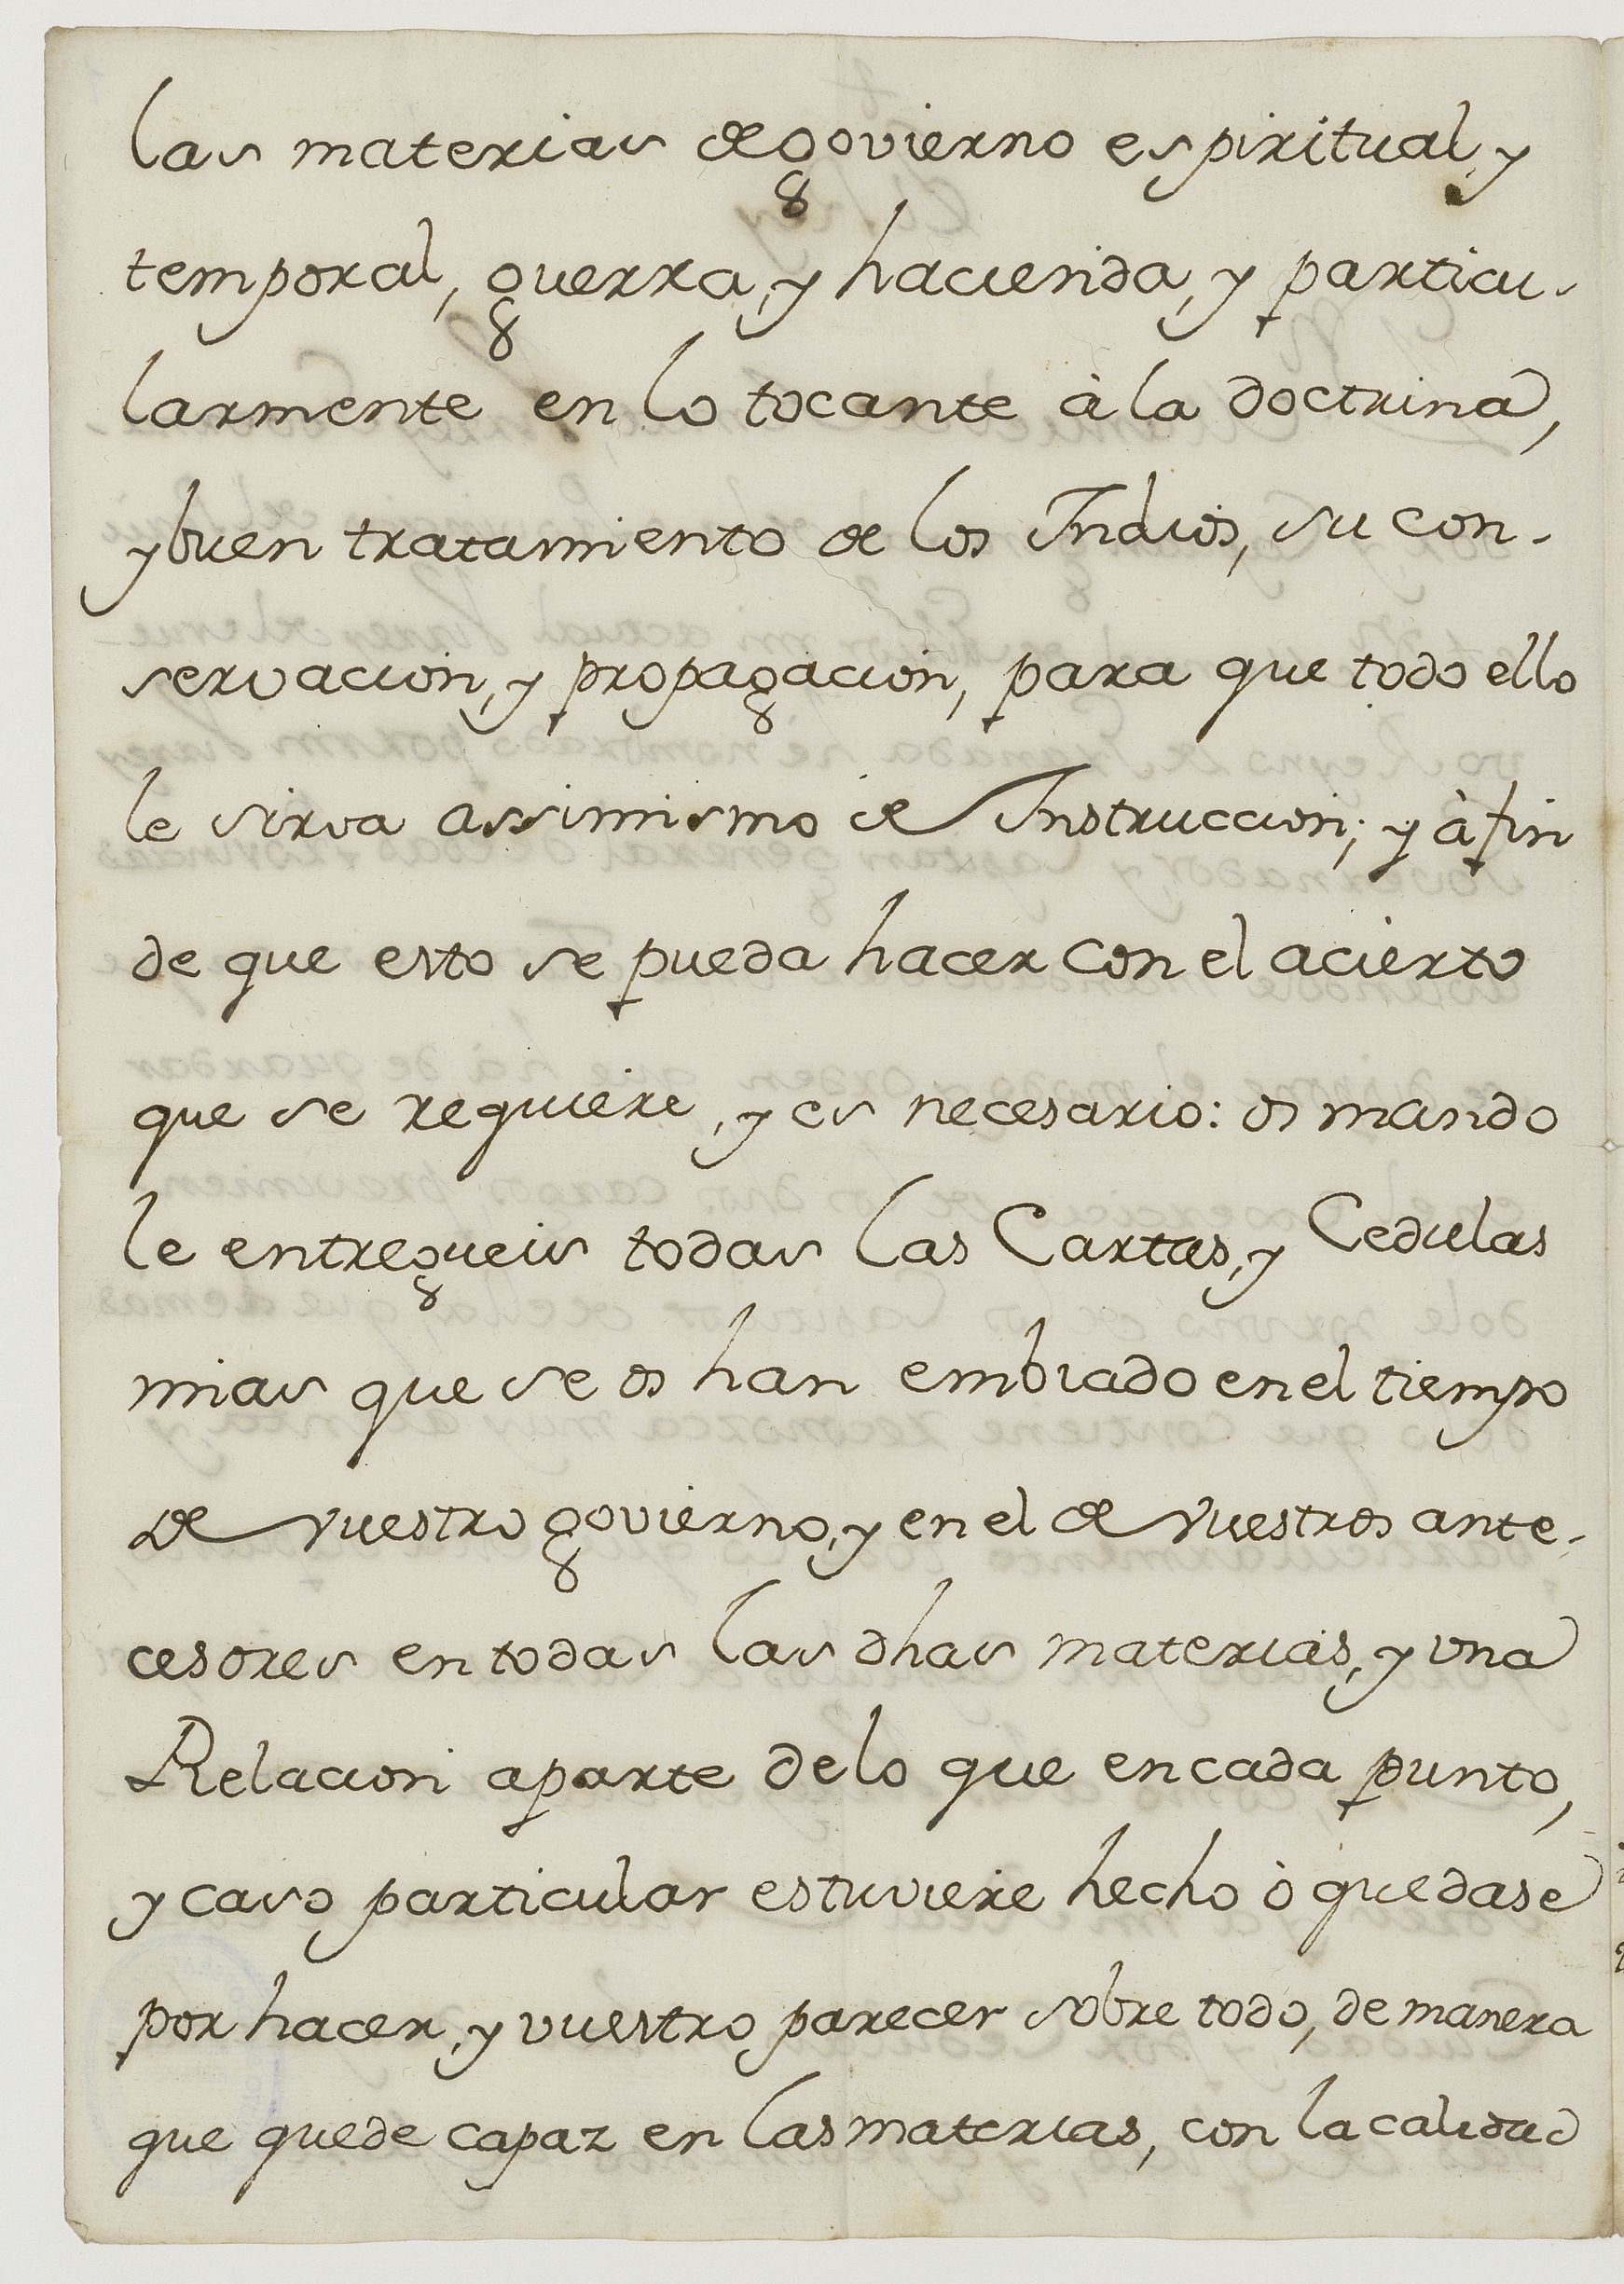 las materias de govierno espiritual, y
temporal, guerra, y hacienda, y particu-
larmente en lo tocante à la doctrina,
y buen tratamiento de los Indios, su con-
servacion, y propagacion, para que todo ello
le sirva assimismo de Instruccion; y à fin
de que esto se pueda hacer con el acierto
que se requiere, y es necesario: os mando
le entregueis todas las Cartas, y Cedulas
mias que se os han embiado en el tiempo
de vuestro govierno, y en el de vuestros ante-
cesores en todas las dhas materias, y una
Relacion aparte de lo que en cada punto,
y caso particular estuviere hecho ò quedase
por hacer, y vuestro parecer sobre todo, de manera
que quede capaz en las materias, con la calidad